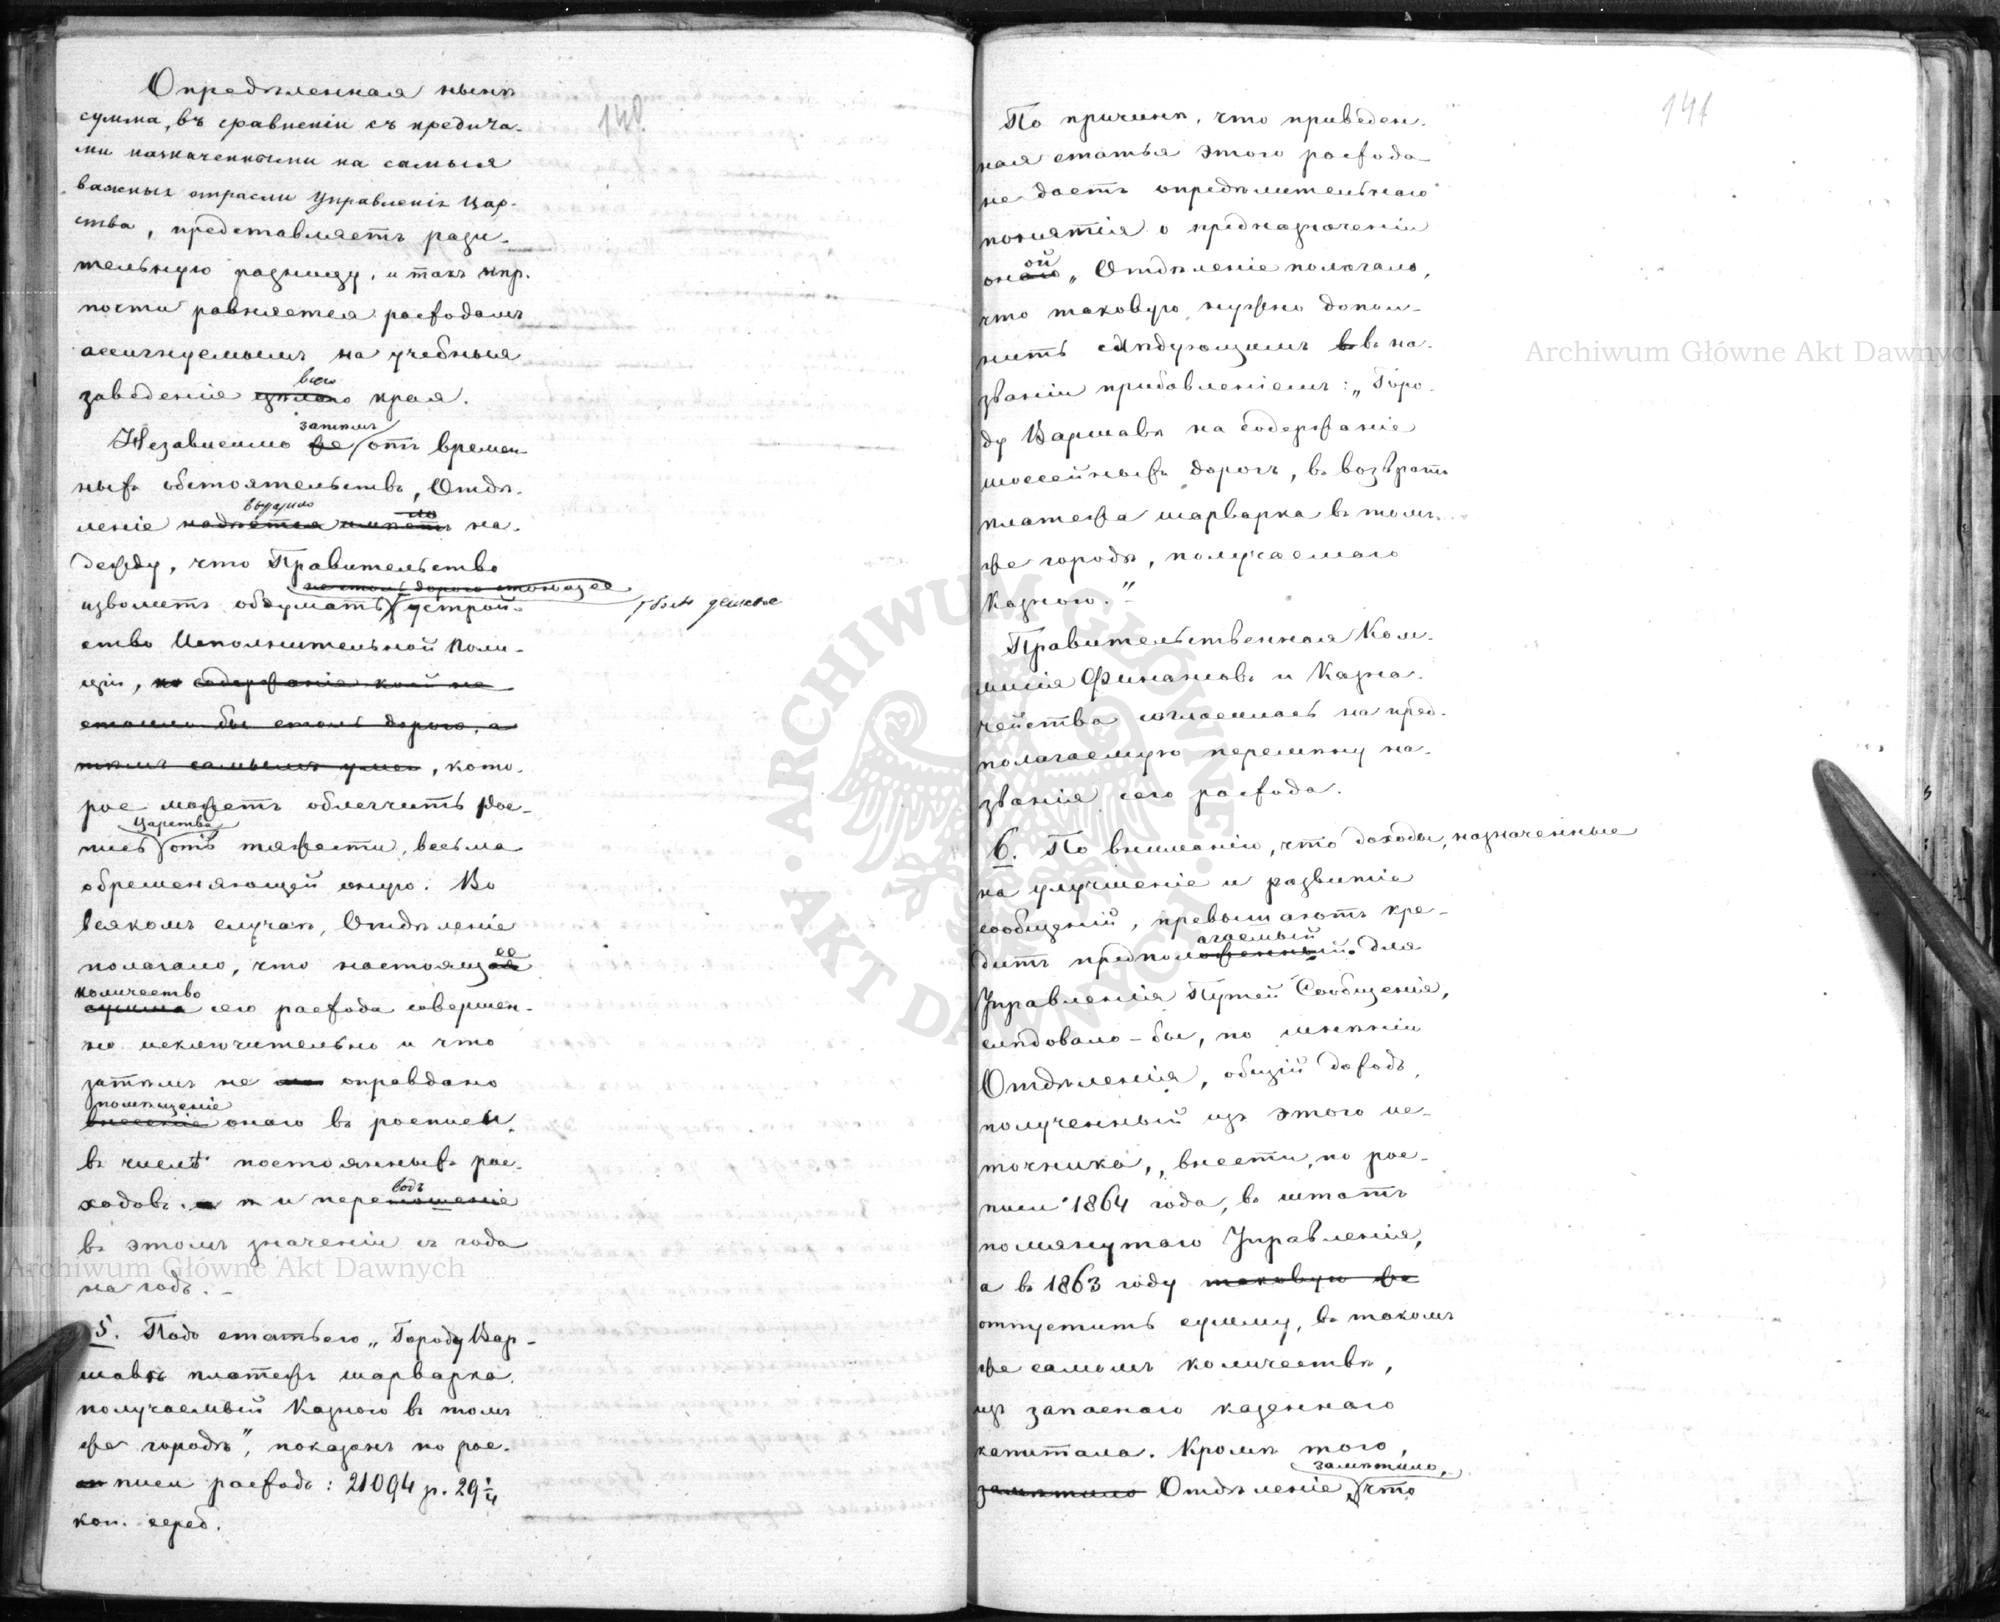 140.
Опредѣленная нынѣ
сумма, въ сравненіи съ предича-
ми назначенными на самыя
важныя отрасли Управленія Цар-
ства, представляетъ рази-
тельную разницу, и такъ напр.
почти равняется расходамъ
ассигнуемымъ на учебныя
всего
заведенія цѣлаго края.
затѣмъ
Независимо же отъ времен-
ныхъ обстоятельствъ, Отдѣ-
выразило ло
леніе надѣется имѣетъ на-
дежду, что Правительство
не столь дорого стоющее
изволитъ обдумать устрой-
ство Исполнительной Поли-
ціи, но содержаніе коей не
стоило бы столь дорого, а
тѣмъ самымъ, кото-
рое можетъ облегчить Рос-
Царства
пись отъ тяжести, весьма
обременяющей оную. Во
всякомъ случаѣ, Отдѣленіе
ее
полагало, что настоящая
количество
сумма сего расхода совершен-
но исключительно и что
затѣмъ не оправдано
помѣщеніе
внесеніе онаго въ росписи,
въ числѣ постоянныхъ рас-
водъ
ходовъ. и переношеніе
въ этомъ значеніи съ года
на годъ. –
5. Подъ статьею „Городу Вар-
шавѣ платежъ шарварка,
получаемый Казною въ томъ
же городѣ“, показанъ по рос-
писи расходъ: 21094 р. 29 1/4
коп. сереб.
141
По причинѣ, что приведен-
ная статья этого расхода
не даетъ опредѣлительнаго
понятія о предназначеніи
ой
онаго, Отдѣленіе полагало,
что таковую нужно допол-
нить слѣдующимъ въ на-
званіи прибавленіемъ: „Горо-
ду Варшавѣ на содержаніе
шоссейныхъ дорогъ, въ возвратъ
платежа шарварка въ томъ-
же городѣ, получаемаго
Казною.“ –
Правительственная Ком-
мисія Финансовъ и Казна-
чейства согласилась на пред-
полагаемую перемѣну на-
званія сего расхода.
6. По вниманію, что доходы, назначенные
на улучшеніе и развитіе
сообщеній, превышаютъ кре-
агаемый
дитъ предположенный для
Управленія Путей Сообщенія,
слѣдовало-бы, по мнѣнію
Отдѣленія, общій доходъ,
полученный изъ этого ис-
точника, внести, по рос-
писи 1864 года, въ штатъ
помянутаго Управленія,
а въ 1863 году таковую же
отпустить сумму, въ такомъ
же самомъ количествѣ,
изъ запаснаго казеннаго
капитала. Кромѣ того,
замѣтило,
замѣтило Отдѣленіе, что
Archiwum Główne Akt Dawnych
Archiwum Główne Akt Dawnych
ARCHIWUM GŁÓWNE AKT DAWNYCH